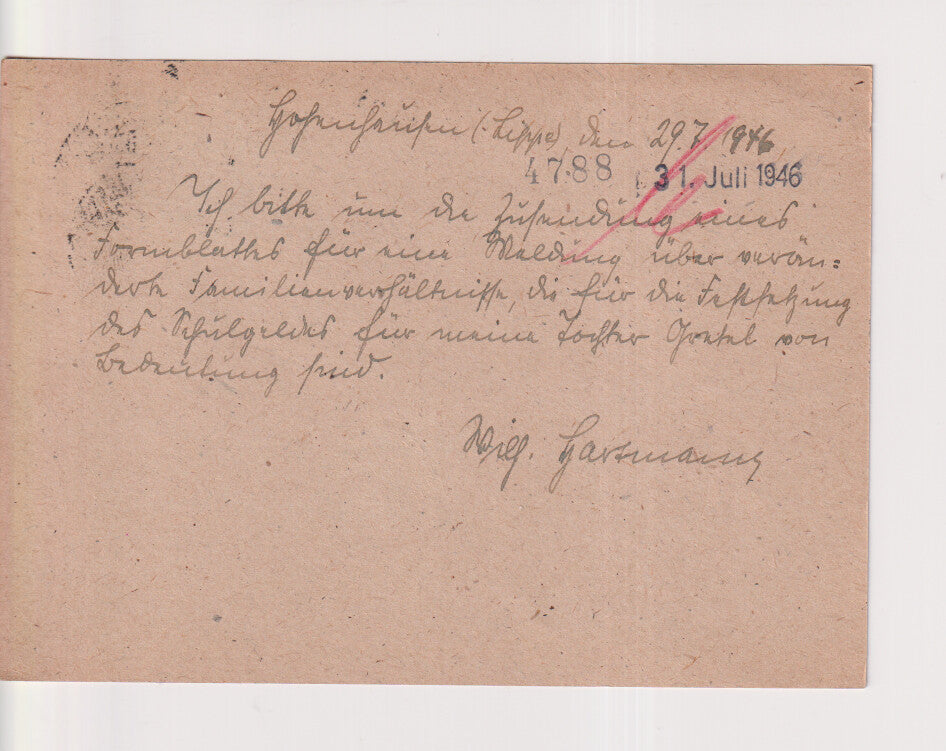 Hohenhausen (Lippe), den 29.7.1946
4788 31. Juli 1946
Ich bitte um die Zusendung eines
Formblattes für eine Meldung über verän=
derte Familienverhältnisse, die für die Festsetzung
des Schulgeldes für meine Tochter Gretel von
Bedeutung sind.
Wilh. Hartmann